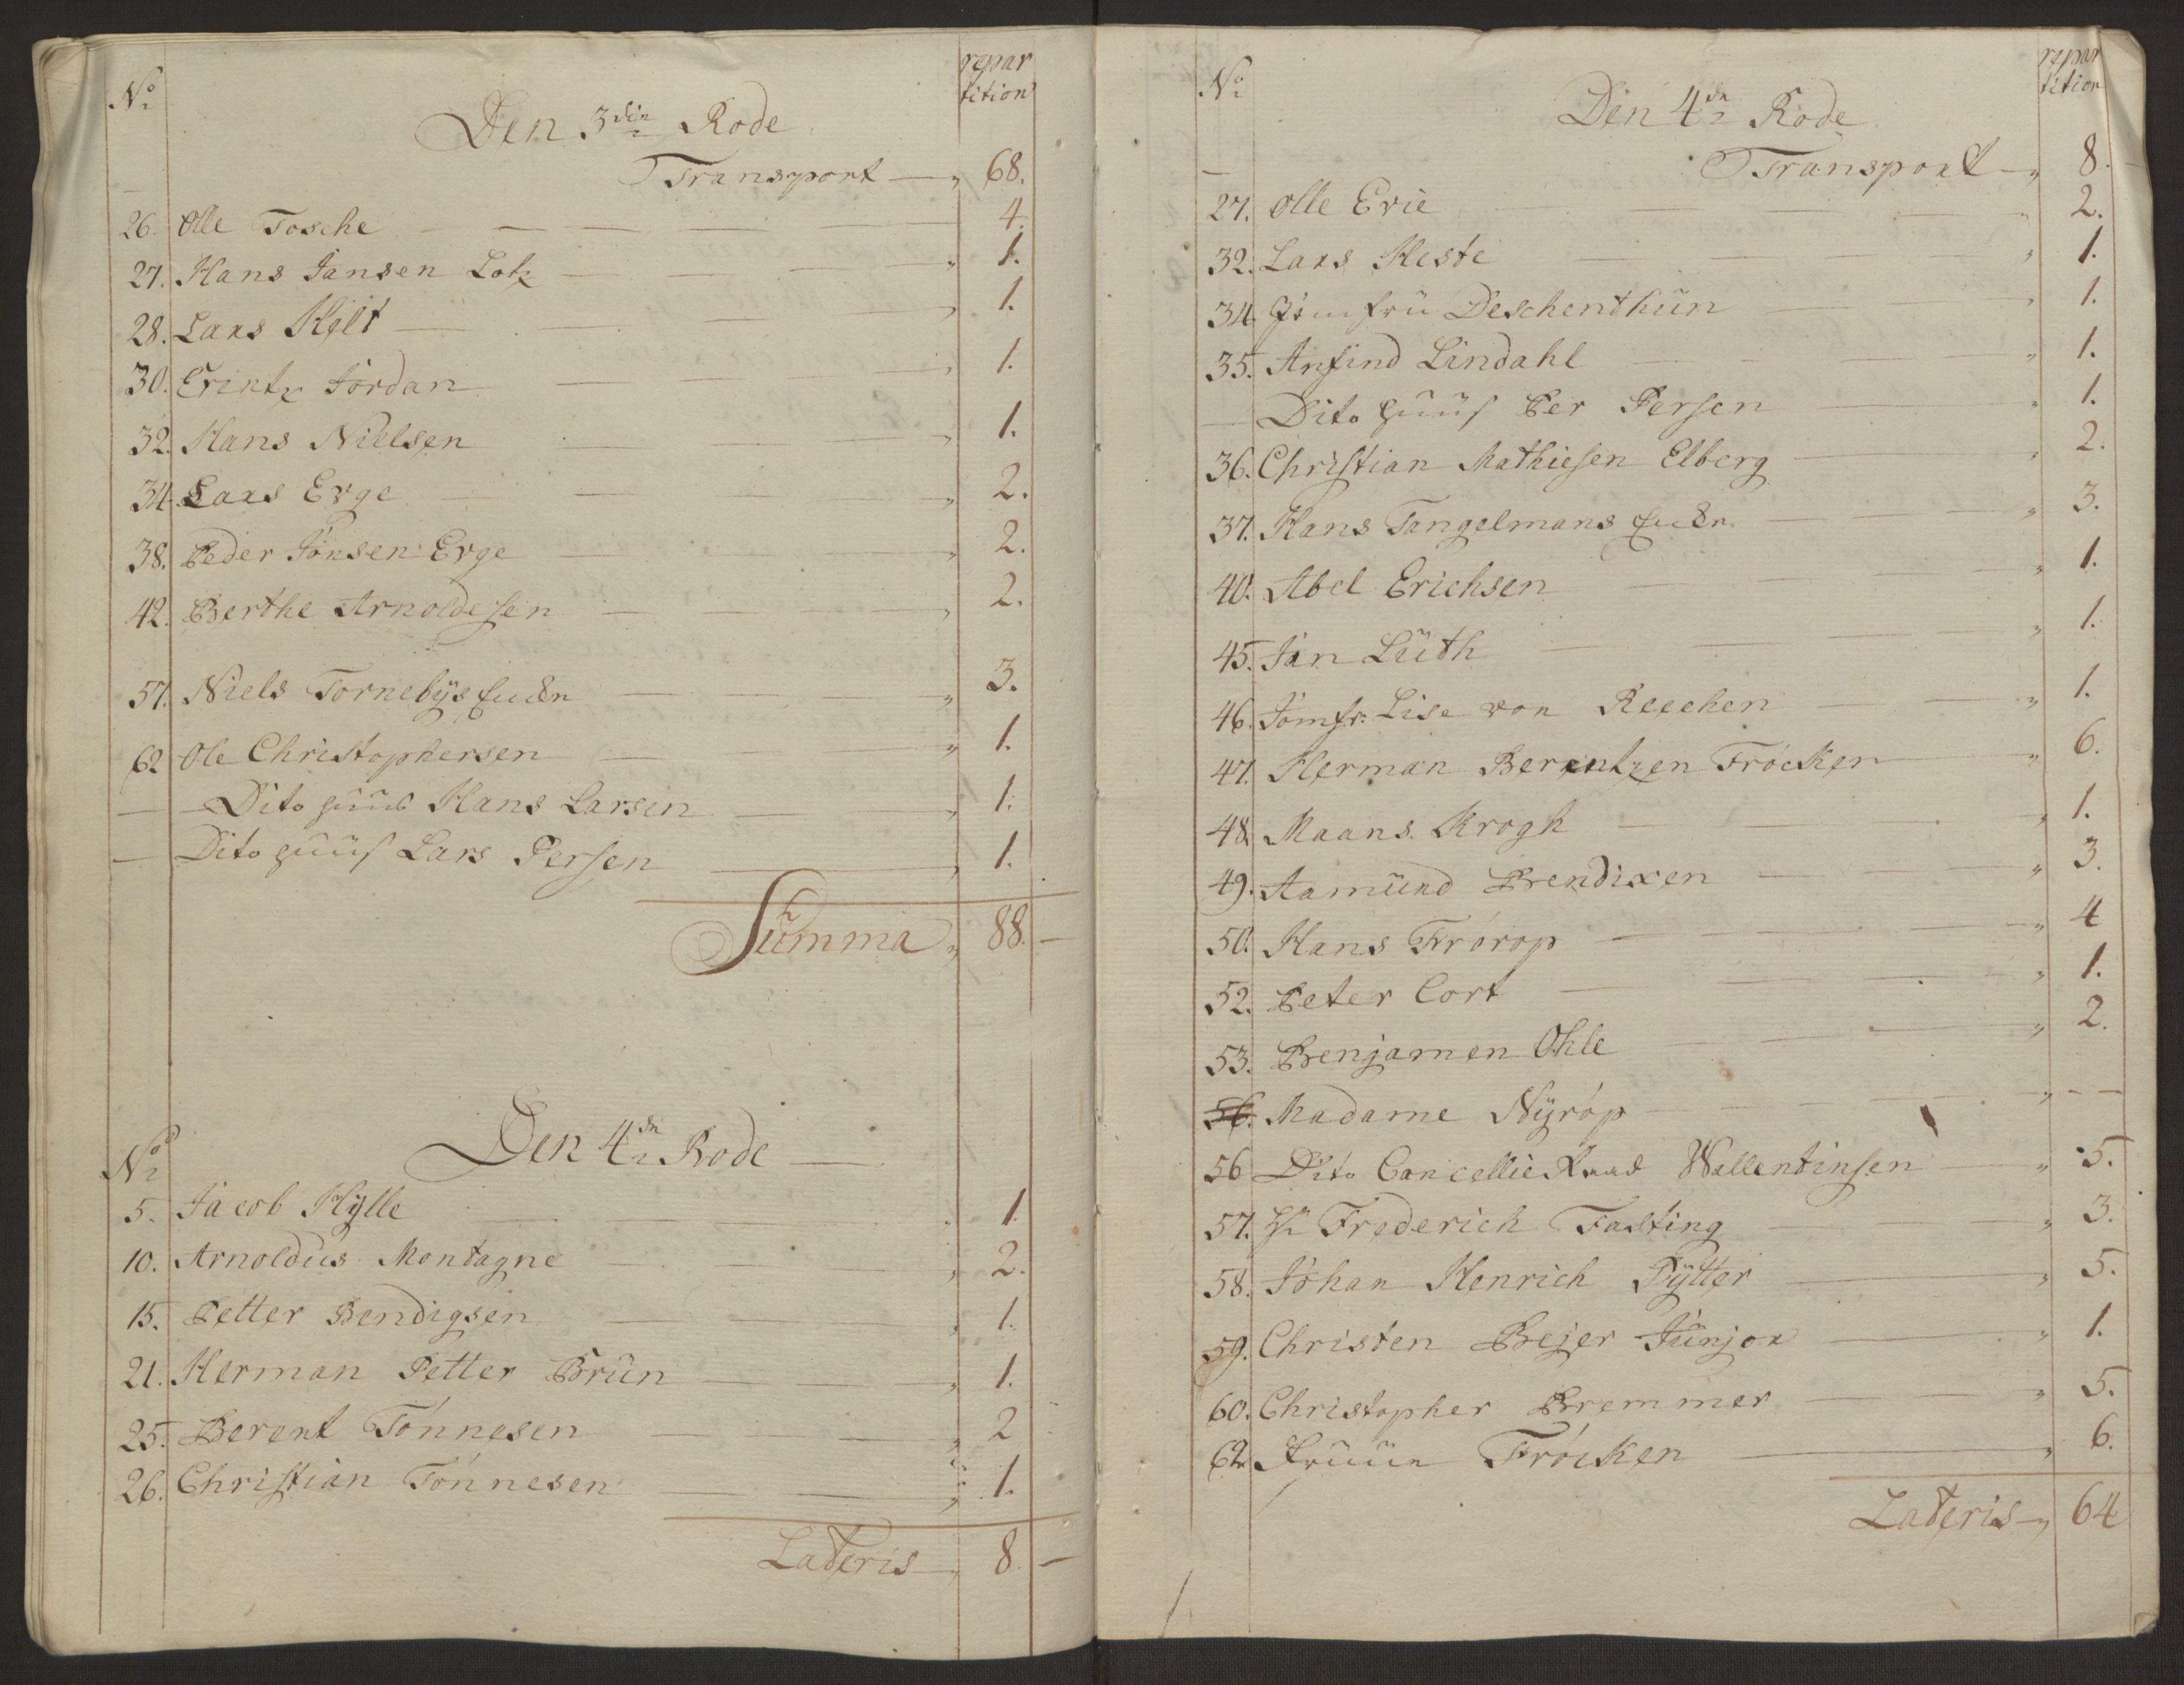 No
repar
tition
Den 3din Rode
Transport 68.
26. Olle Tosche 4.
27. Hans Jansen Lotz 1.
28. Lars Kilt 1.
30. Erintz Jordan 1.
32. Hans Nielsen 1.
34. Lars Erge 2.
38. Peder Jonsen Erge 2.
42. Berthe Arnoldesen 2.
57. Niels Tornebÿs 3.
62 Ole Christophersen 1.
Dito Huus Hans Larsen 1.
Dito Huus Lars Persen 1.
Summa 88.
No
Den 4de Rode
5. Jacob Hylle 1
10. Arnoldus Montagne 2.
15. Petter Bendigsen 1.
21. Herman Petter Brün 1.
25. Berent Tönnesen 2
26. Christian Tönnesen 1.
Lateris 8.
No
repar
tition
Den 4de Rode
Transport 8.
27. Olle Evie 2.
32. Lars Heste 1.
34. Jomfru Deschenthun 1.
35. Anfind Lindahl 1.
Dito Huus Per Persen 1.
36. Christian Mathiesen Elberg 2.
37. Hans Tangelmans 3.
40. Abel Erichsen 1.
45. Jan Lüth 1.
46. Jomfr. Lise von Reechen 1.
47. Herman Berentzen Fröcken 6.
48. Maans Krogh 1.
49. Aamund Bendixen 3.
50. Hans Frörop 4
52. Peter Cort 1.
53. Benjamen Ohle 2.
56. Madame Nÿröp
56 Dito Cancellie Raad Wallentinsen 5.
57. Hr Frederich Fasting 3.
58. Johan Henrich Pÿtter 5.
59. Christen Bejer Junjor 1.
60. Christopher Bremmer 5.
62. Fruün Fröcken 6.
Lateris 64